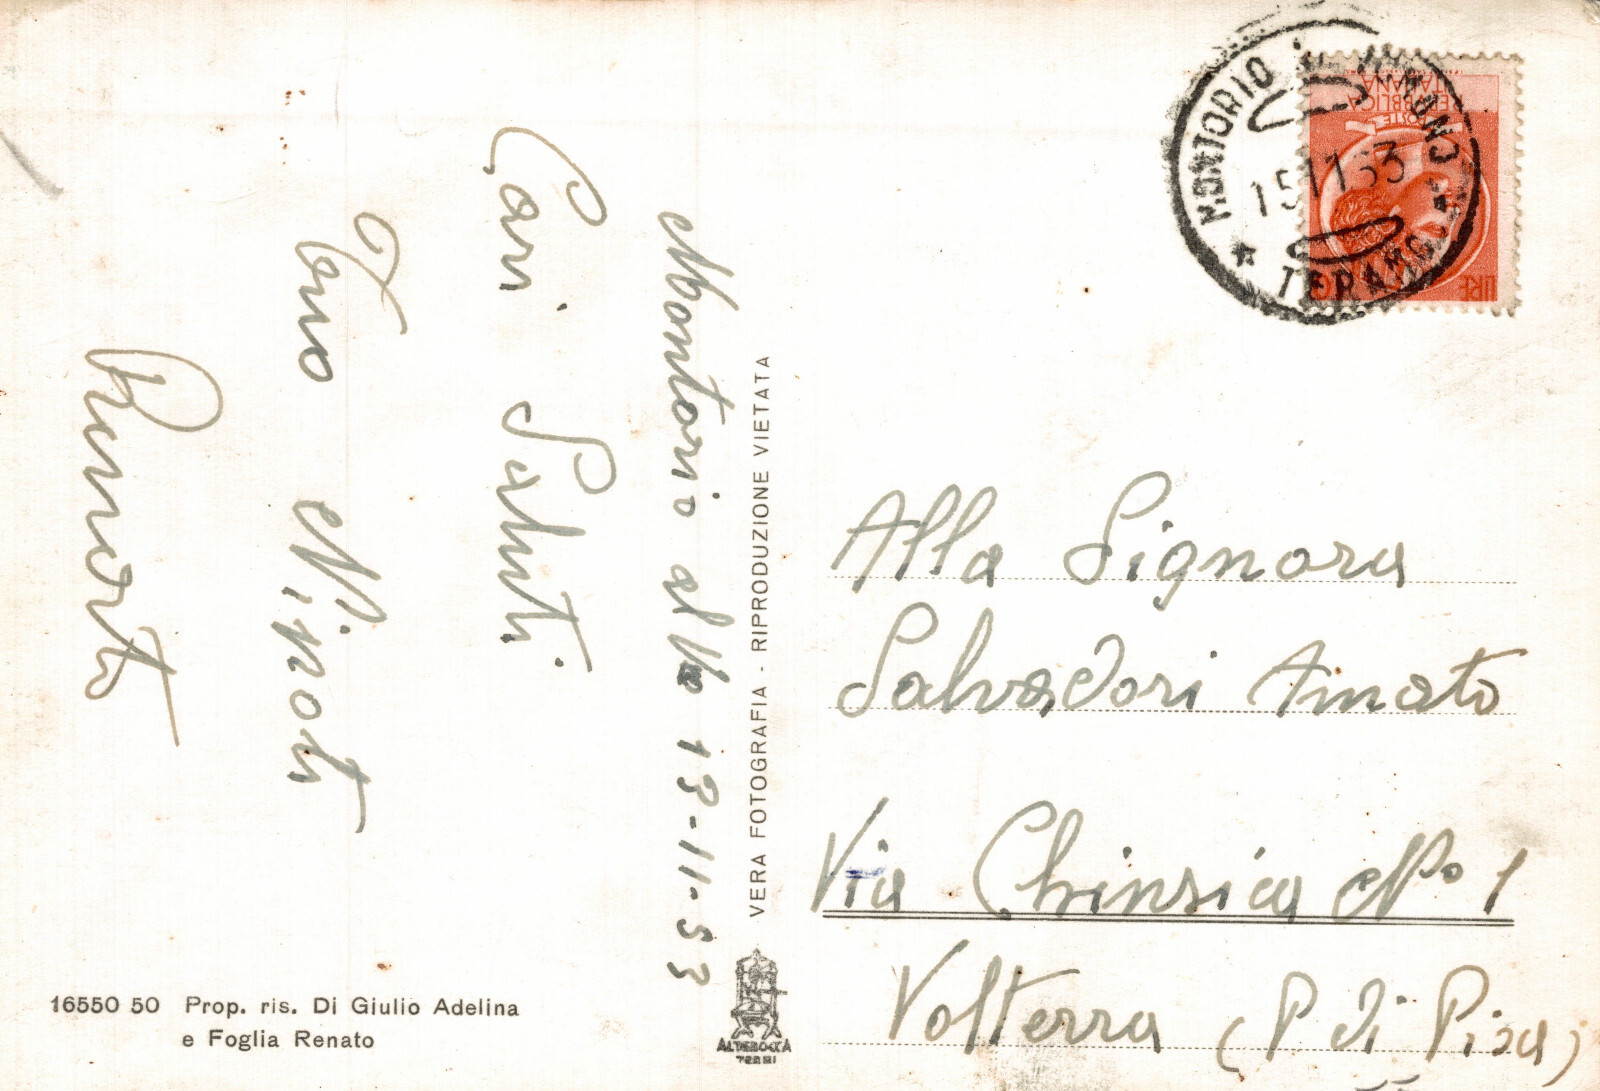 Montorio al Vo 13-11-53
Cari Saluti
Vono Nipoti
Renato
VERA FOTOGRAFIA - RIPRODUZIONE VIETATA
16550 50 Prop. ris. Di Giulio Adelina
e Foglia Renato
ALTEROCCA
TERNI
MONTORIO AL VOMANO
* TERAMO *
15 11 53
REPUBBLICA
ITALIANA
POSTE
LIRE
Alla Signora
Salvadori Amato
Via Chinsica No 1
Volterra (P di Pisa)